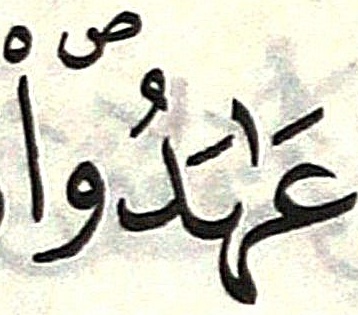 عَٰهَدُوا۟ۖ